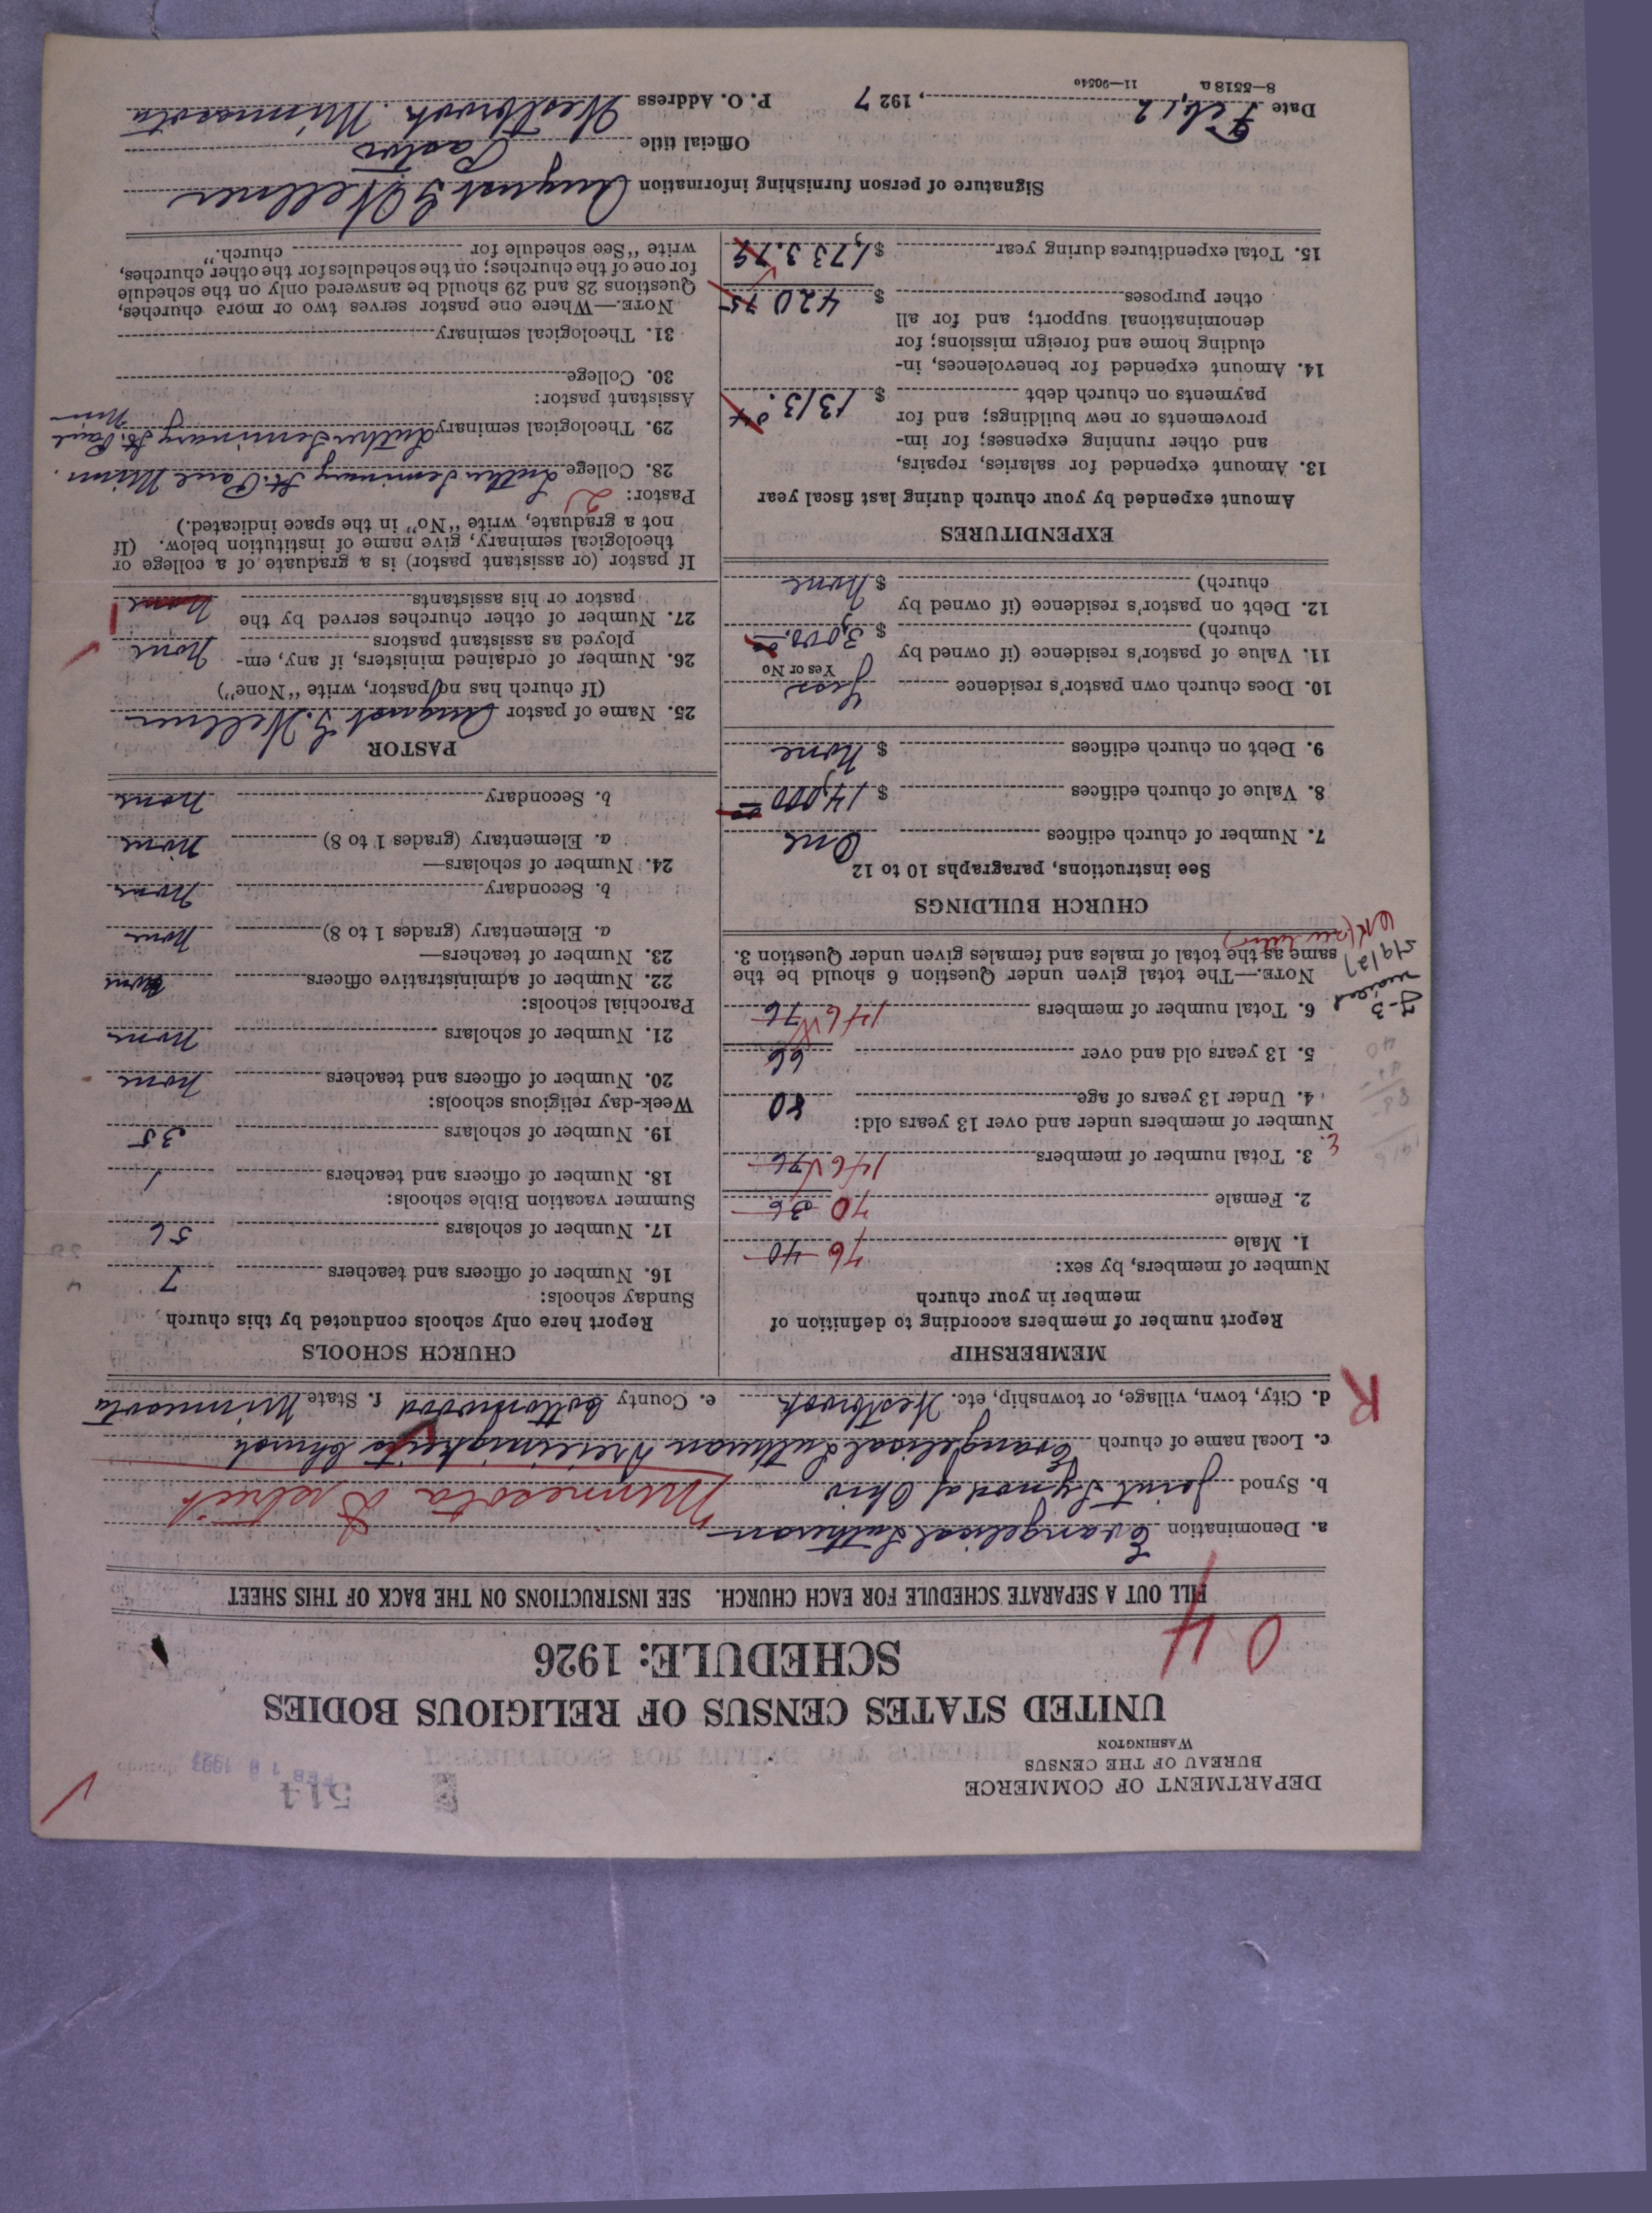 DEPARTMENT OF COMMERCE
BUREAU OF THE CENSUS
WASHINGTON
514
FEB 18 1927
UNITED STATES CENSUS OF RELIGIOUS BODIES
SCHEDULE: 1926
0 4
FILL OUT A SEPARATE SCHEDULE FOR EACH CHURCH. SEE INSTRUCTIONS ON THE BACK OF THIS SHEET
a. Denomination Evangelical Lutheran
b. Synod Joint Synod of Ohio Minnesota District
c. Local name of church Evangelical Lutheran Dreieinigkeits Church
d. City, town, village, or township, etc. Westbrook e. County Cottonwood f. State Minnesota
R
MEMBERSHIP
Report number of members according to definition of
member in your church
Number of members, by sex:
1. Male 76 40
2. Female 70 36
3. Total number of members 146 76
Number of members under and over 13 years old:
4. Under 13 years of age 80
5. 13 years old and over 66
6. Total number of members 146 76
NOTE.—The total given under Question 6 should be the
same as the total of males and females given under Question 3.
CHURCH BUILDINGS
See instructions, paragraphs 10 to 12
7. Number of church edifices One
8. Value of church edifices $ 14,000 00
9. Debt on church edifices $ none
10. Does church own pastor's residence Yes
Yes or No
11. Value of pastor's residence (if owned by
church) $ 3,000.00
12. Debt on pastor's residence (if owned by
church) $ none
EXPENDITURES
Amount expended by your church during last fiscal year
13. Amount expended for salaries, repairs,
and other running expenses; for im-
provements or new buildings; and for
payments on church debt $ 1313.04
14. Amount expended for benevolences, in-
cluding home and foreign missions; for
denominational support; and for all
other purposes $ 420 75
15. Total expenditures during year $ 1,733.79
CHURCH SCHOOLS
Report here only schools conducted by this church
Sunday schools:
16. Number of officers and teachers 7
17. Number of scholars 56
Summer vacation Bible schools:
18. Number of officers and teachers 1
19. Number of scholars 35
Week-day religious schools:
20. Number of officers and teachers none
21. Number of scholars none
Parochial schools:
22. Number of administrative officers none
23. Number of teachers—
a. Elementary (grades 1 to 8) none
b. Secondary none
24. Number of scholars—
a. Elementary (grades 1 to 8) none
b. Secondary none
PASTOR
25. Name of pastor August G. Wellner
(If church has no pastor, write "None")
26. Number of ordained ministers, if any, em-
ployed as assistant pastors none
27. Number of other churches served by the
pastor or his assistants none
If pastor (or assistant pastor) is a graduate of a college or
theological seminary, give name of institution below. (If
not a graduate, write "No" in the space indicated.)
Pastor: 2
28. College Luther Seminary St. Paul Minn.
29. Theological seminary Luther Seminary St. Paul Minn
Assistant pastor:
30. College
31. Theological seminary
NOTE.—Where one pastor serves two or more churches,
Questions 28 and 29 should be answered only on the schedule
for one of the churches; on the schedules for the other churches,
write "See schedule for church."
Signature of person furnishing information August G Wellner
Official title Pastor
Date Feb. 12, 1927 P. O. Address Westbrook. Minnesota
8—5518a 11—9054o